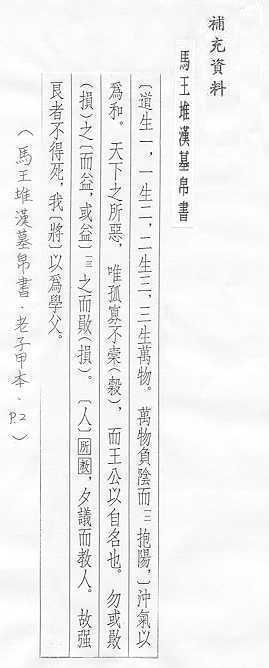 補充資料
馬王堆漢墓帛書
〔道生一，一生二，二生三，三生萬物。萬物負陰而一二抱陽，〕沖氣以
爲和。天下之所惡，唯孤寡不橐(穀)，而王公以自名也。勿或敗
(損)之〔而益，或益〕一三之而敗(損)。〔人〕所教，夕議而教人。故强
良者不得死，我〔將〕以爲學父。
(馬王堆漢墓帛書·老子甲本·P.2)